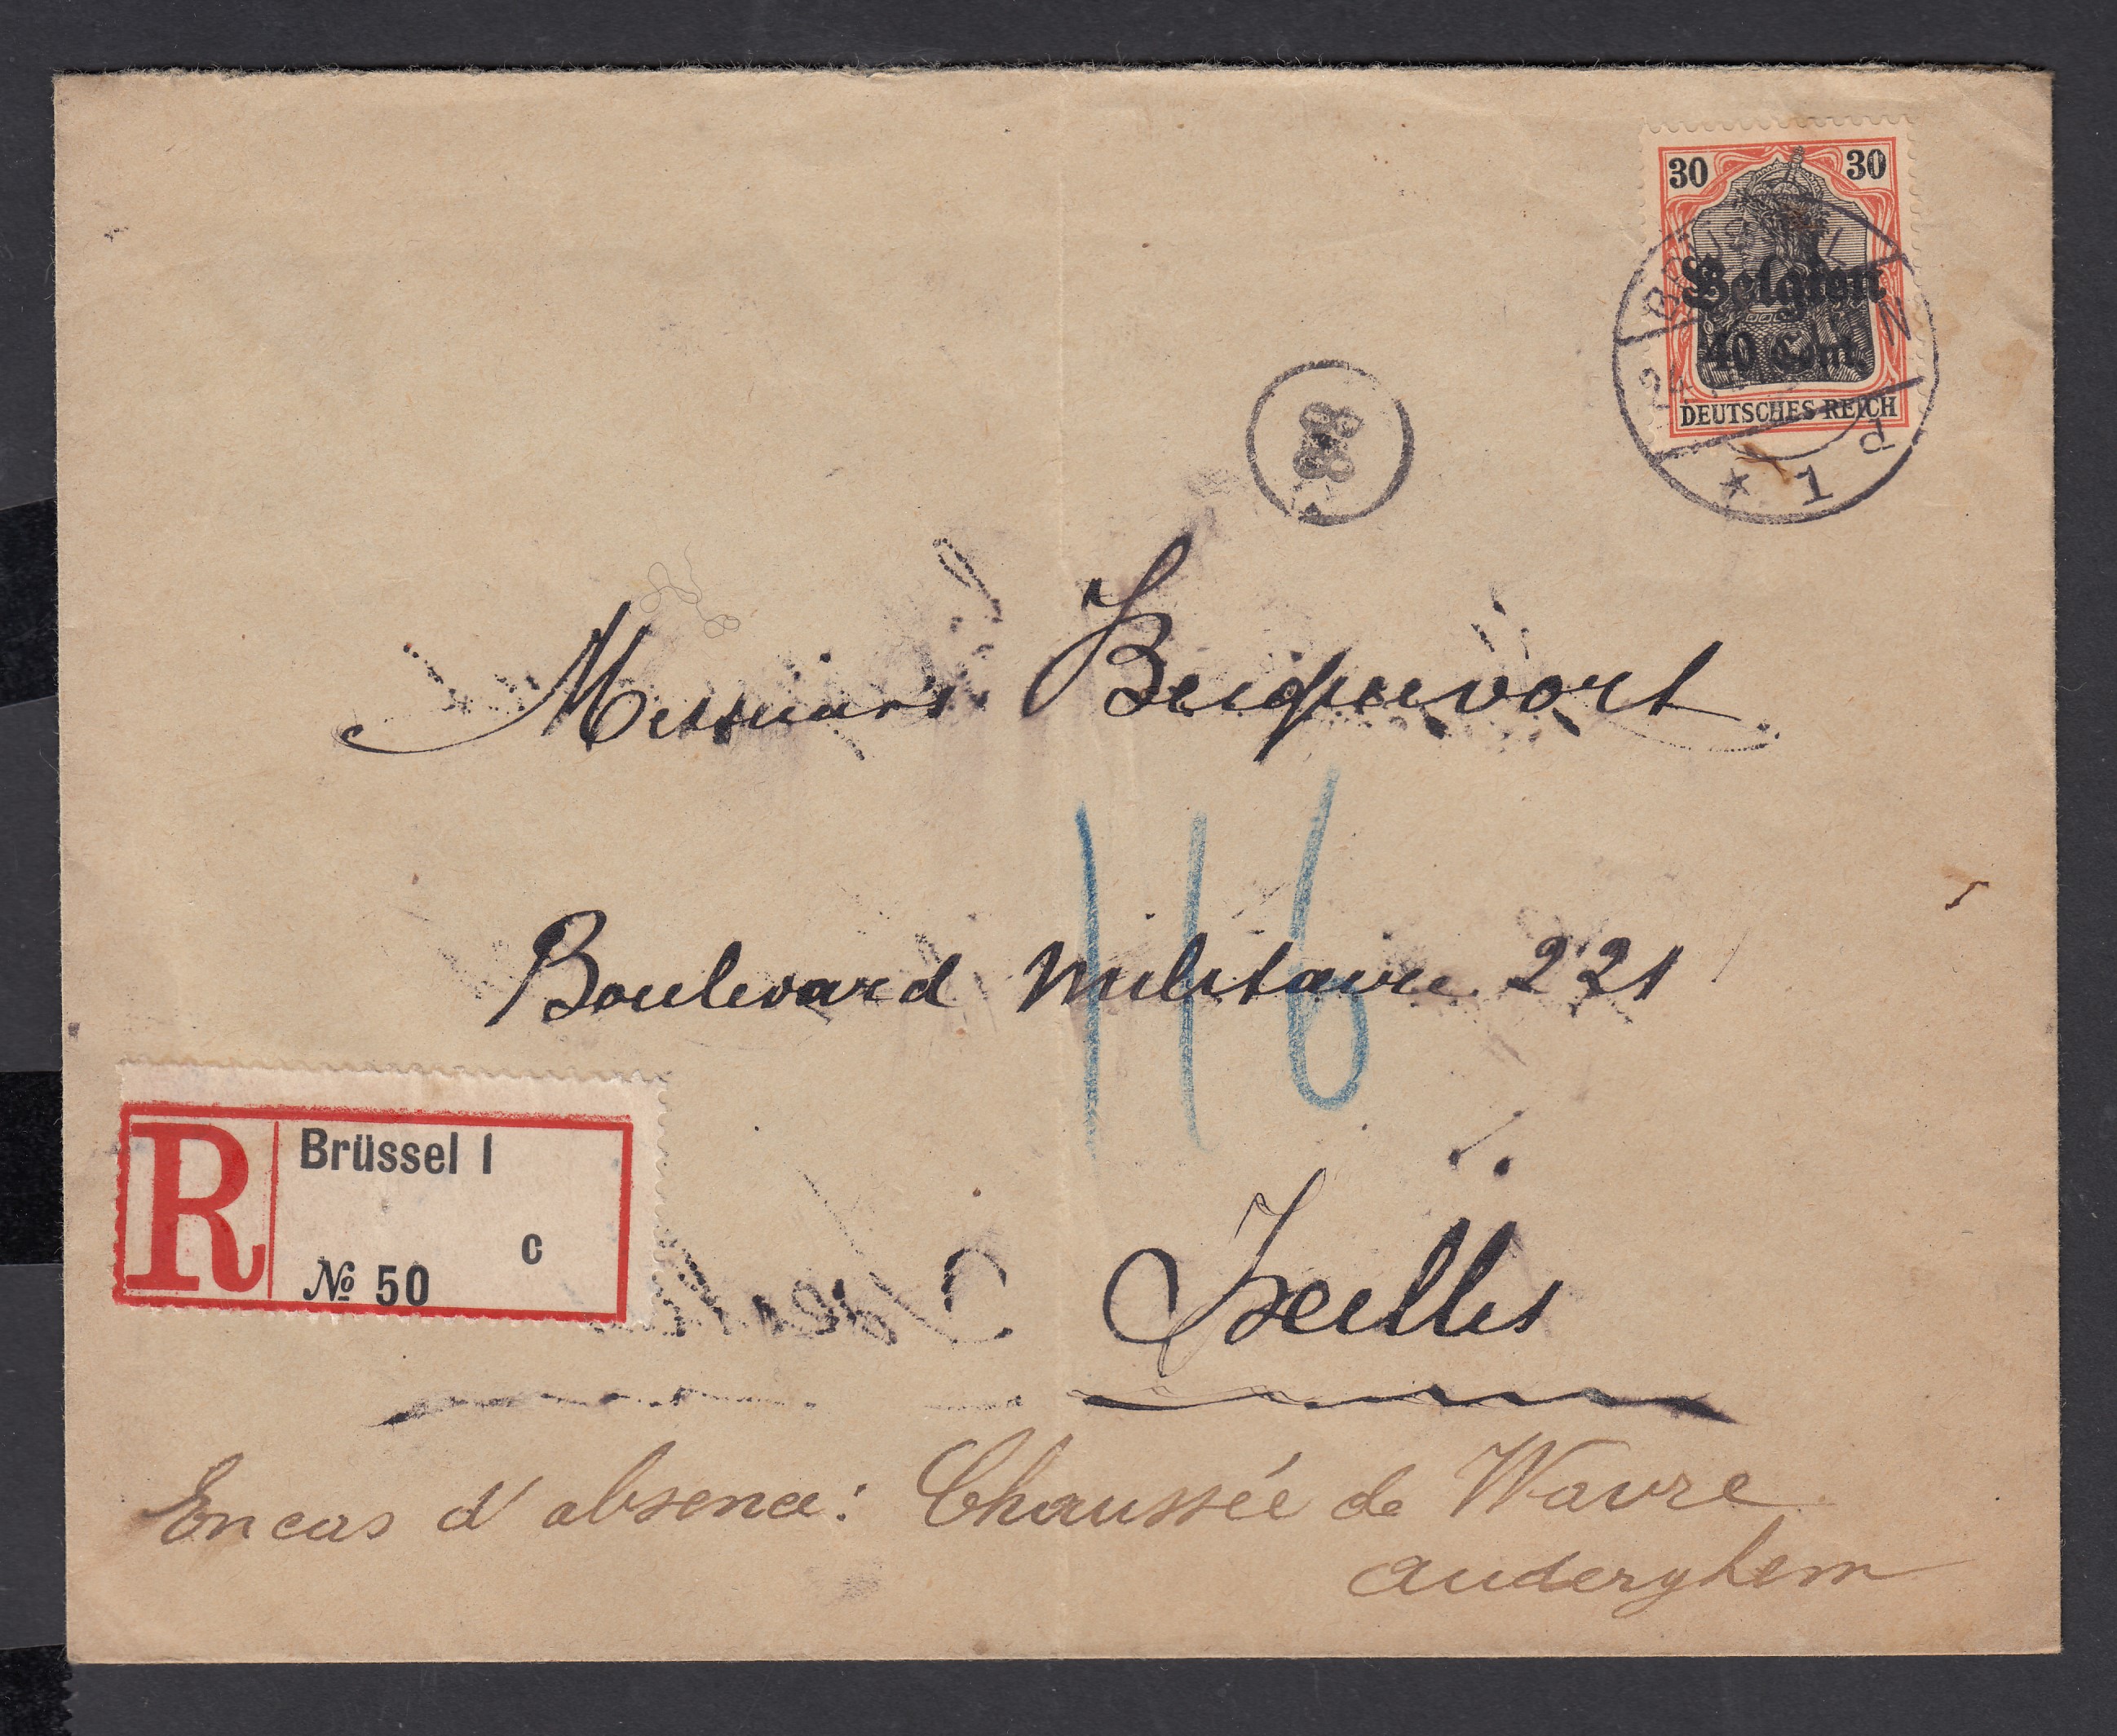 30 30
Belgien
40 Cent.
DEUTSCHES REICH
24
* 1 d
Messieurs Becquevort
116
Boulevard Militaire 221
R Brüssel 1
c
№ 50
Ixelles
En cas d'absence: Chaussée de Wavre
Auderghem